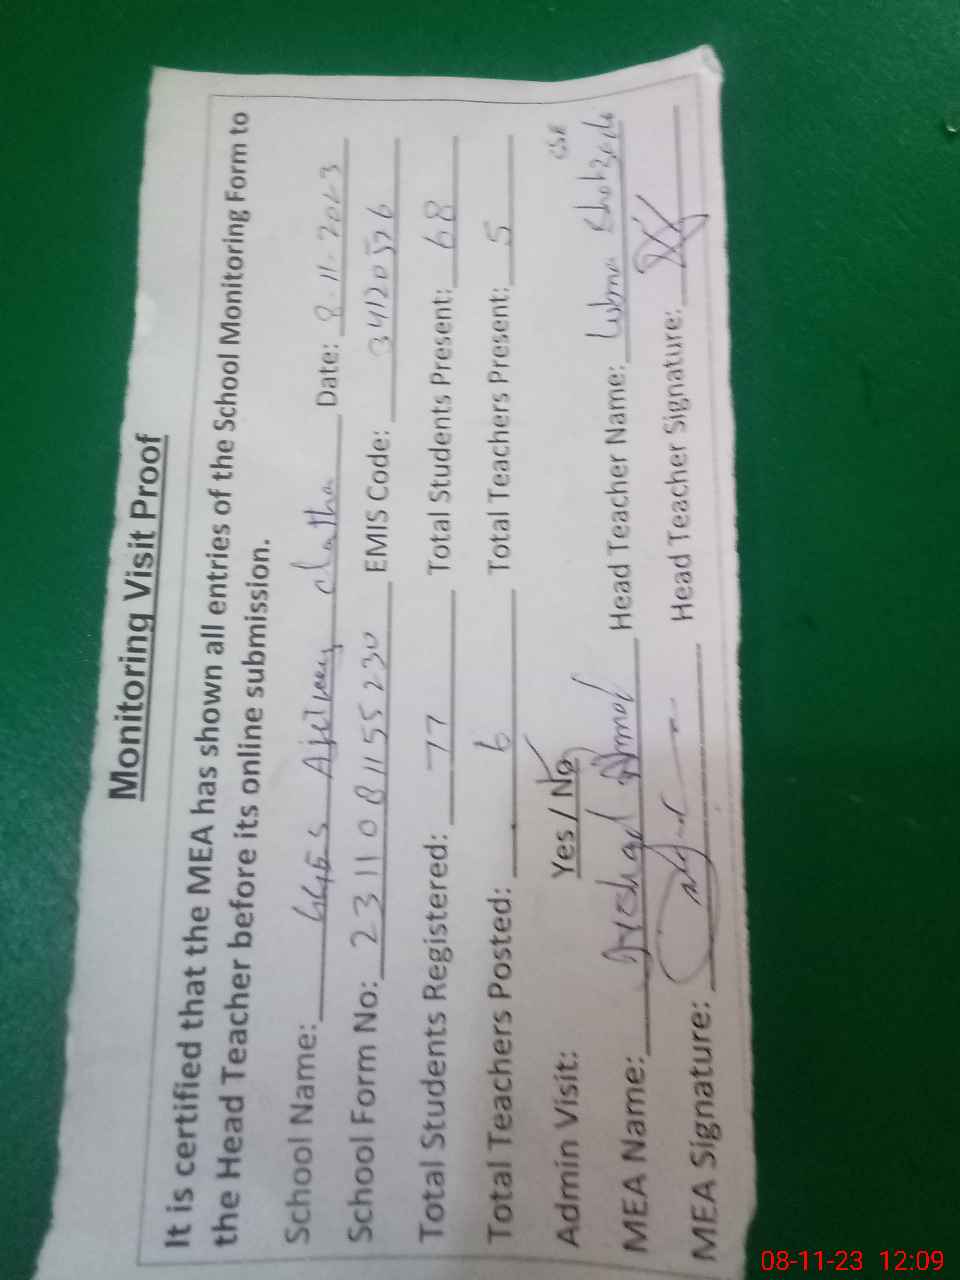 Monitoring Visit Proof
It is certified that the MEA has shown all entries of the School Monitoring Form to
the Head Teacher before its online submission.
School Name: chatha Date: 8-11-2023
School Form No: 2311081155230 EMIS Code: 34120526
Total Students Registered: 77 Total Students Present: 68
Total Teachers Posted: 6 Total Teachers Present: 5
Admin Visit: Yes / No CSE
MEA Name: Arshad Ahmad Head Teacher Name: Lubna Shahzadi
MEA Signature: Head Teacher Signature:
08-11-23 12:09